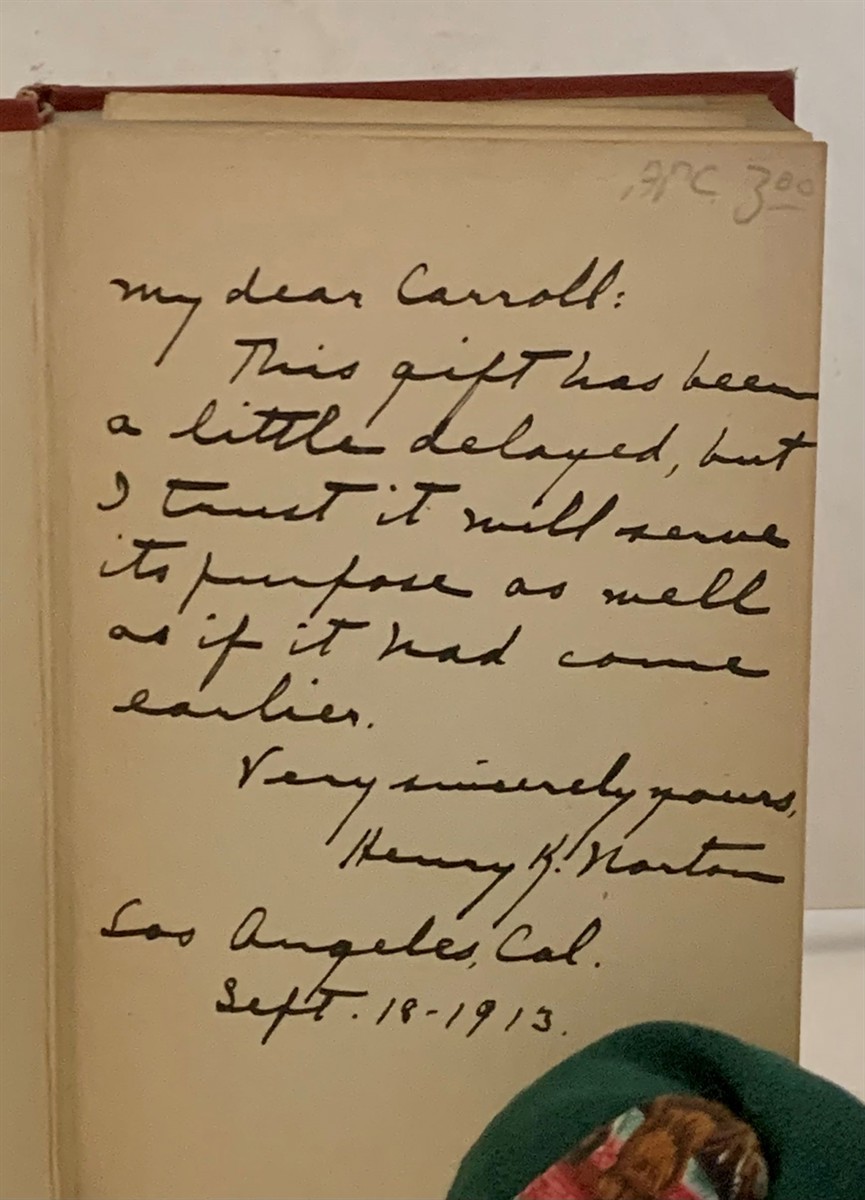 3.00
My dear Carroll:
This gift has been
a little delayed, but
I trust it will serve
its purpose as well
as if it had come
earlier.
Very sincerely yours,
Henry K. Norton
Los Angeles, Cal.
Sept. 18-1913.